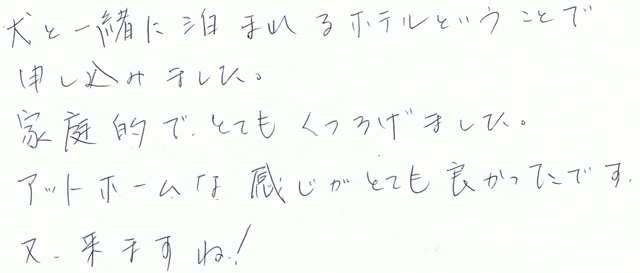 犬と一緒に泊まれるホテルということで
申し込みました。
家庭的で、とてもくつろげました。
アットホームな感じがとても良かったです.
又、来ますね!